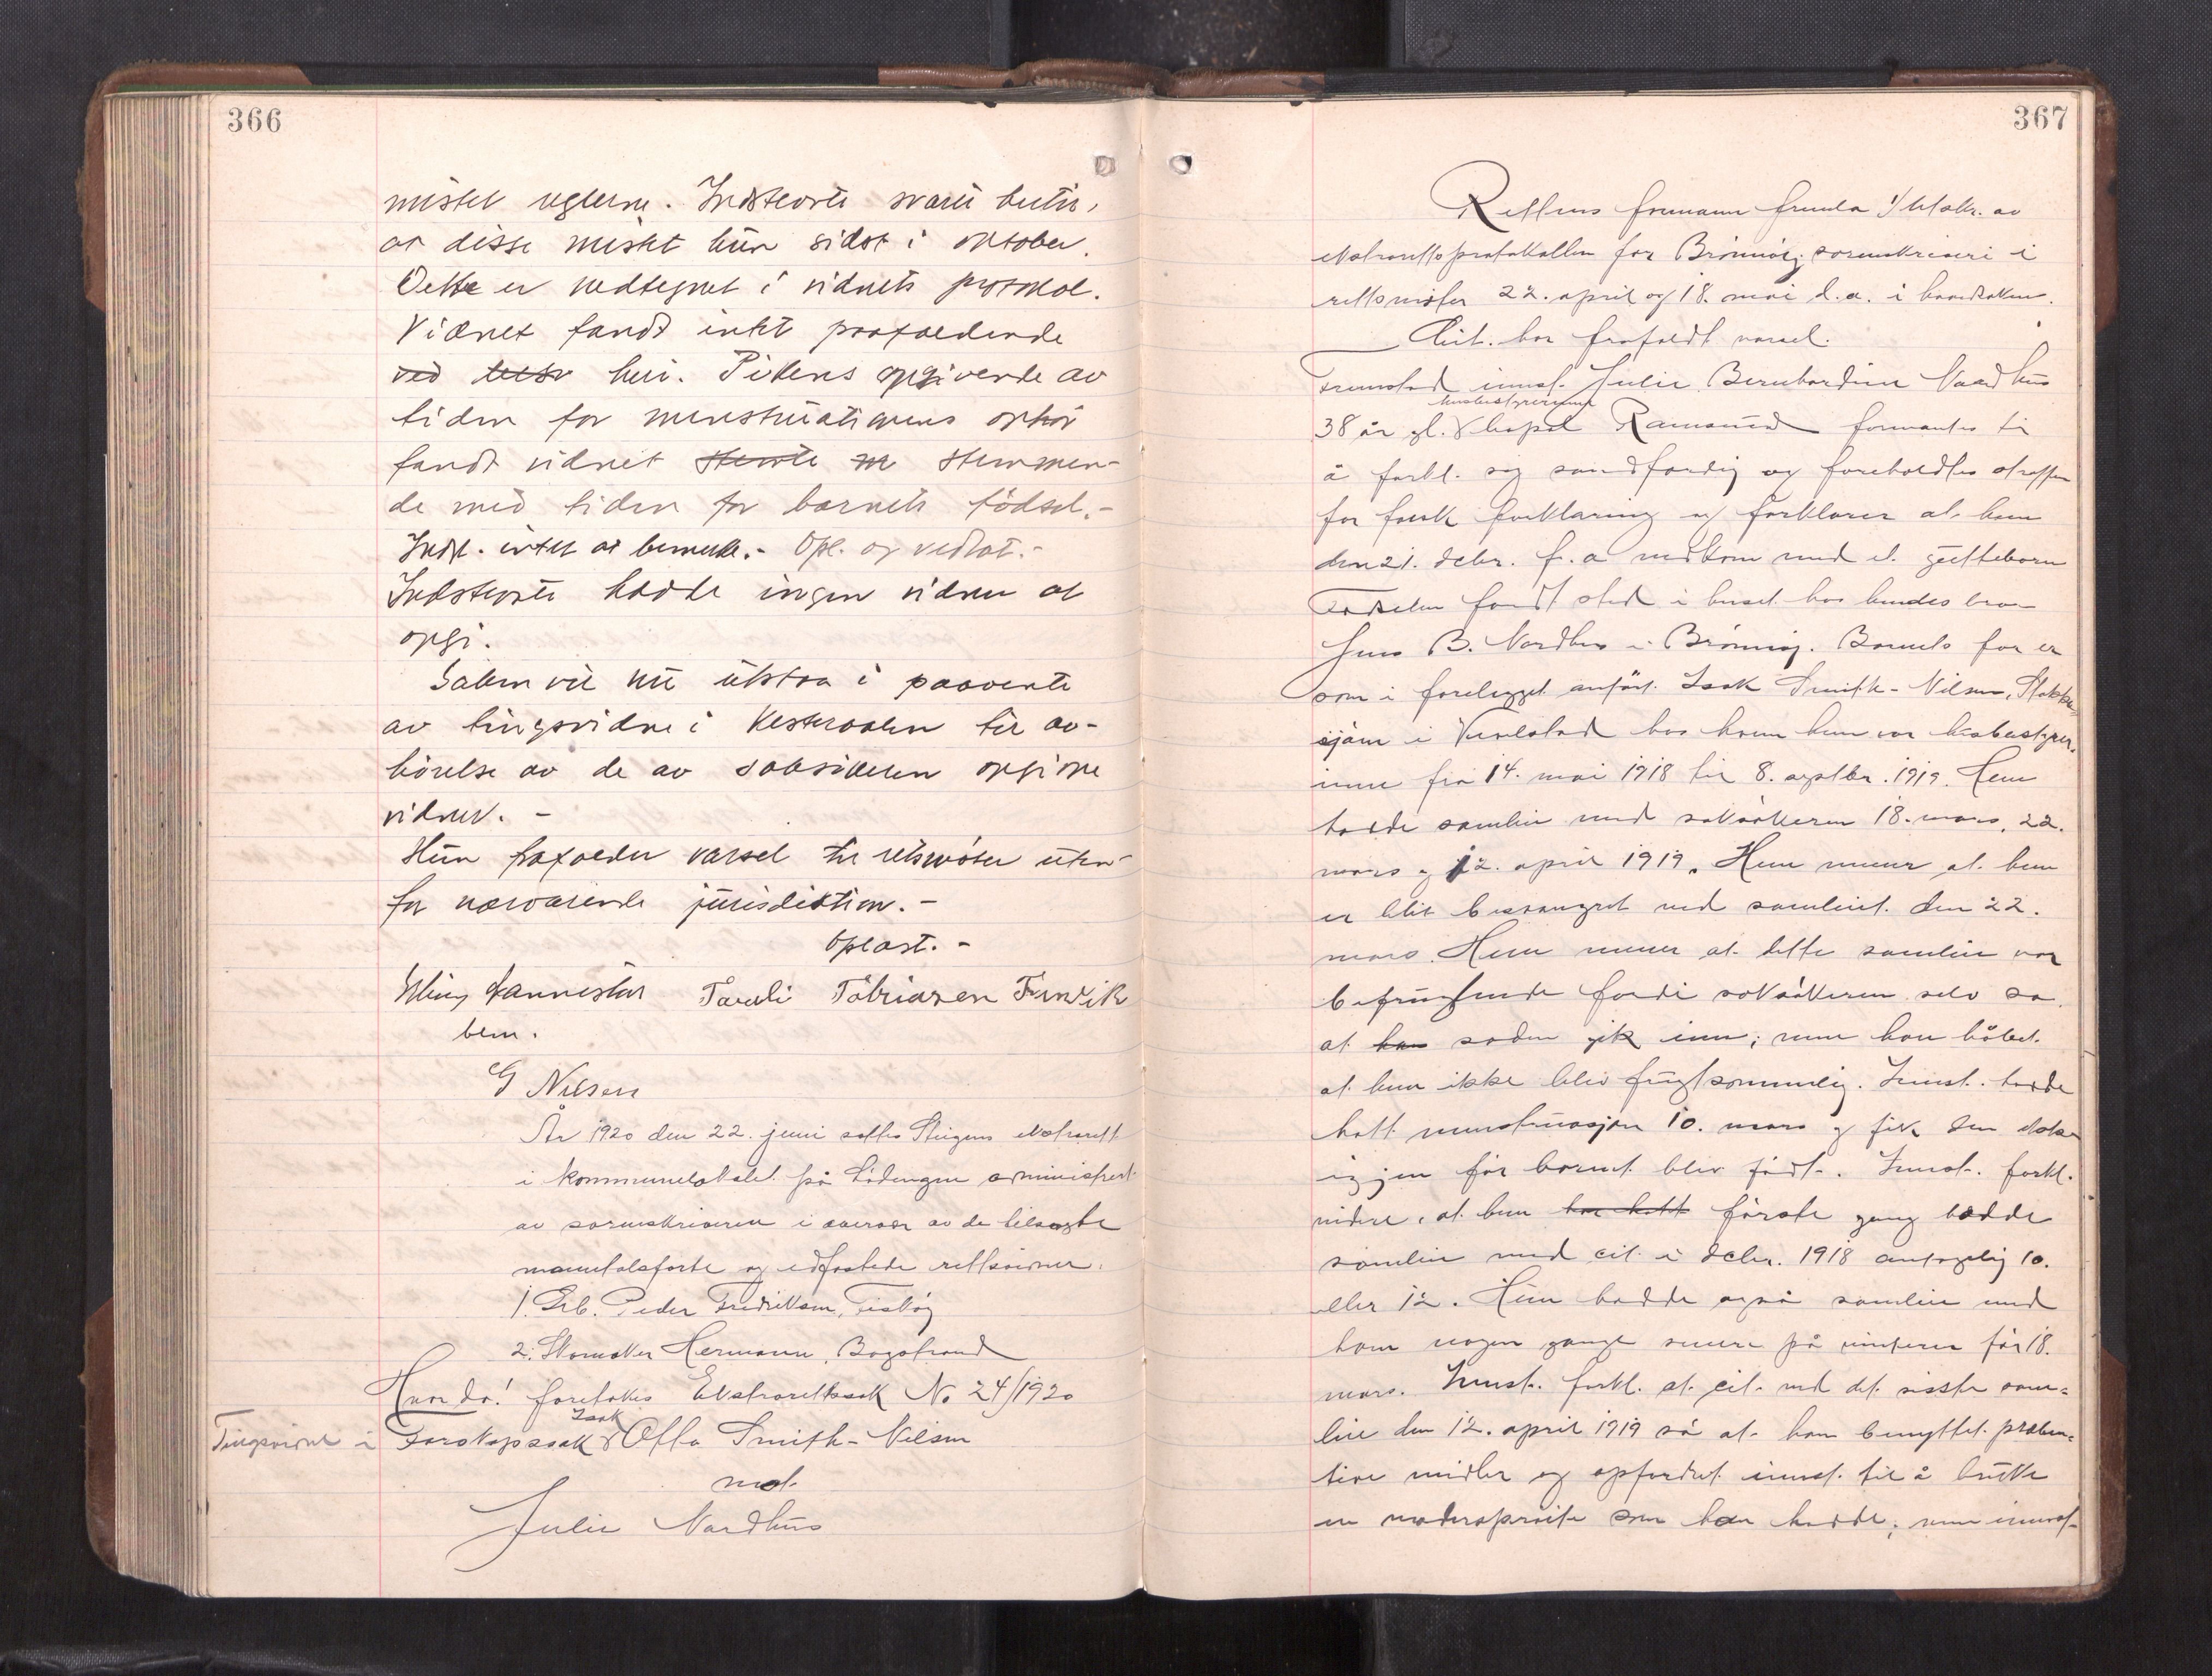 366
mistet reglerne. Indstevnte svarte hertil,
at disse mistet hun sidst i oktober.
Dette er nedtegnet i vidnets protokol.
Vidnet fandt intet paafaldende
ved heri. Pikens opgivende av
tiden for menstruationens ophör
fandt vidnet stemte stemmen-
de med tiden for barnets födsel.-
Indst. intet at bemerke.- Opl. og vedtat.-
Indstevnte hadde ingen vidner at
opgi.
Saken vil nu utstaa i paavente
av tingsvidne i Vesteraalen til av-
hörelse av de av saksökeren opgivne
vidner. -
Hun frafalder varsel til retsmöter uten-
for nærværende jurisdiktion.-
Oplæst.-
Tarali Tobiasen Finvik
bem.
G Nilsen
År 1920 den 22. juni sattes Steigens ekstrarett
i kommunelokalet på Lödingen administrert
av sorenskriveren i overvær av de tilsagte
manntalsförte og edfæstede rettsvidner:
1. Grb. Peder Fredriksen, Fiskög
2. Skomaker Hermann, Bogstrand
Hvorda! foretokes Ekstrarettssak No 24/1920
Tingsvidne i Farskapssak Isak Otto Smith-Nilsen
mot
Julie Nordhus
367
Rettens formann fremla 1/ utskr. av
ekstrarettsprotokollen for Brönnöy sorenskriveri i
rettsmöter 22. april og 18. mai d.a. i hovedsaken.
Cit. har frafaldt varsel.
Fremstod innst. Julie Bernhardine Nordhus
38 år gl. husbestyrerinne Ramsund formantes til
å forkl. sig sandfærdig og foreholdtes straffen
for falsk forklaring og forklarer at hun
den 21. debr. f.a nedkom med et gutteborn
Fødselen fandt sted i huset hos hendes bror
Jens B. Nordhus i Brönnöy. Barnets far er
som i forelegget anfört Isak Smith-Nilsen, Stokke-
sjöen i hos hvem hun var husbestyrer-
inne fra 14. mai 1918 til 8. septbr. 1919. Hun
hadde samleie med saksökeren 18. mars, 22.
mars og 12. april 1919. Hun mener at hun
er blit besvangret ved samleiet den 22.
mars. Hun mener at dette samleie var
befruktende fordi saksökeren selv sa
at han sæden gik inn; men han håbet
at hun ikke blev frugtsommelig. Innst. hadde
hatt menstruasjon 10. mars og fik den ikke
igjen för barnet blev födt. Innst. forkl.
videre, at hun har hatt förste gang hadde
samleie med cit. i debr. 1918 antagelig 10.
eller 12. Hun hadde også samleie med
ham nogen gange senere på vinteren för 18.
mars. Innst. forkl. at cit. ved det sisste sam-
leie den 12. april 1919 sa at han benyttet preven-
tive midler og opfordret innst. til å bruke
en modersprøite som han hadde; men innst.